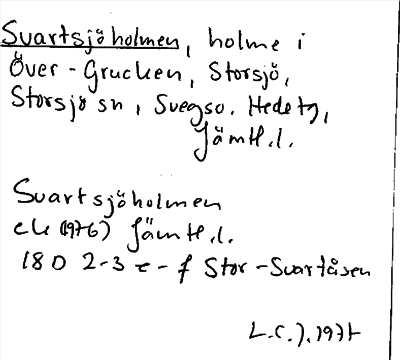 Svartsjöholmen, holme i
Över-Grucken, Storsjö,
Storsjö sn, Svegso. Hede tg,
Jämtl.l.
Svartsjöholmen
ek (1976) Jämtl.l.
18D 2-3 e-f Stor-Svartåsen
L.C.J. 1977